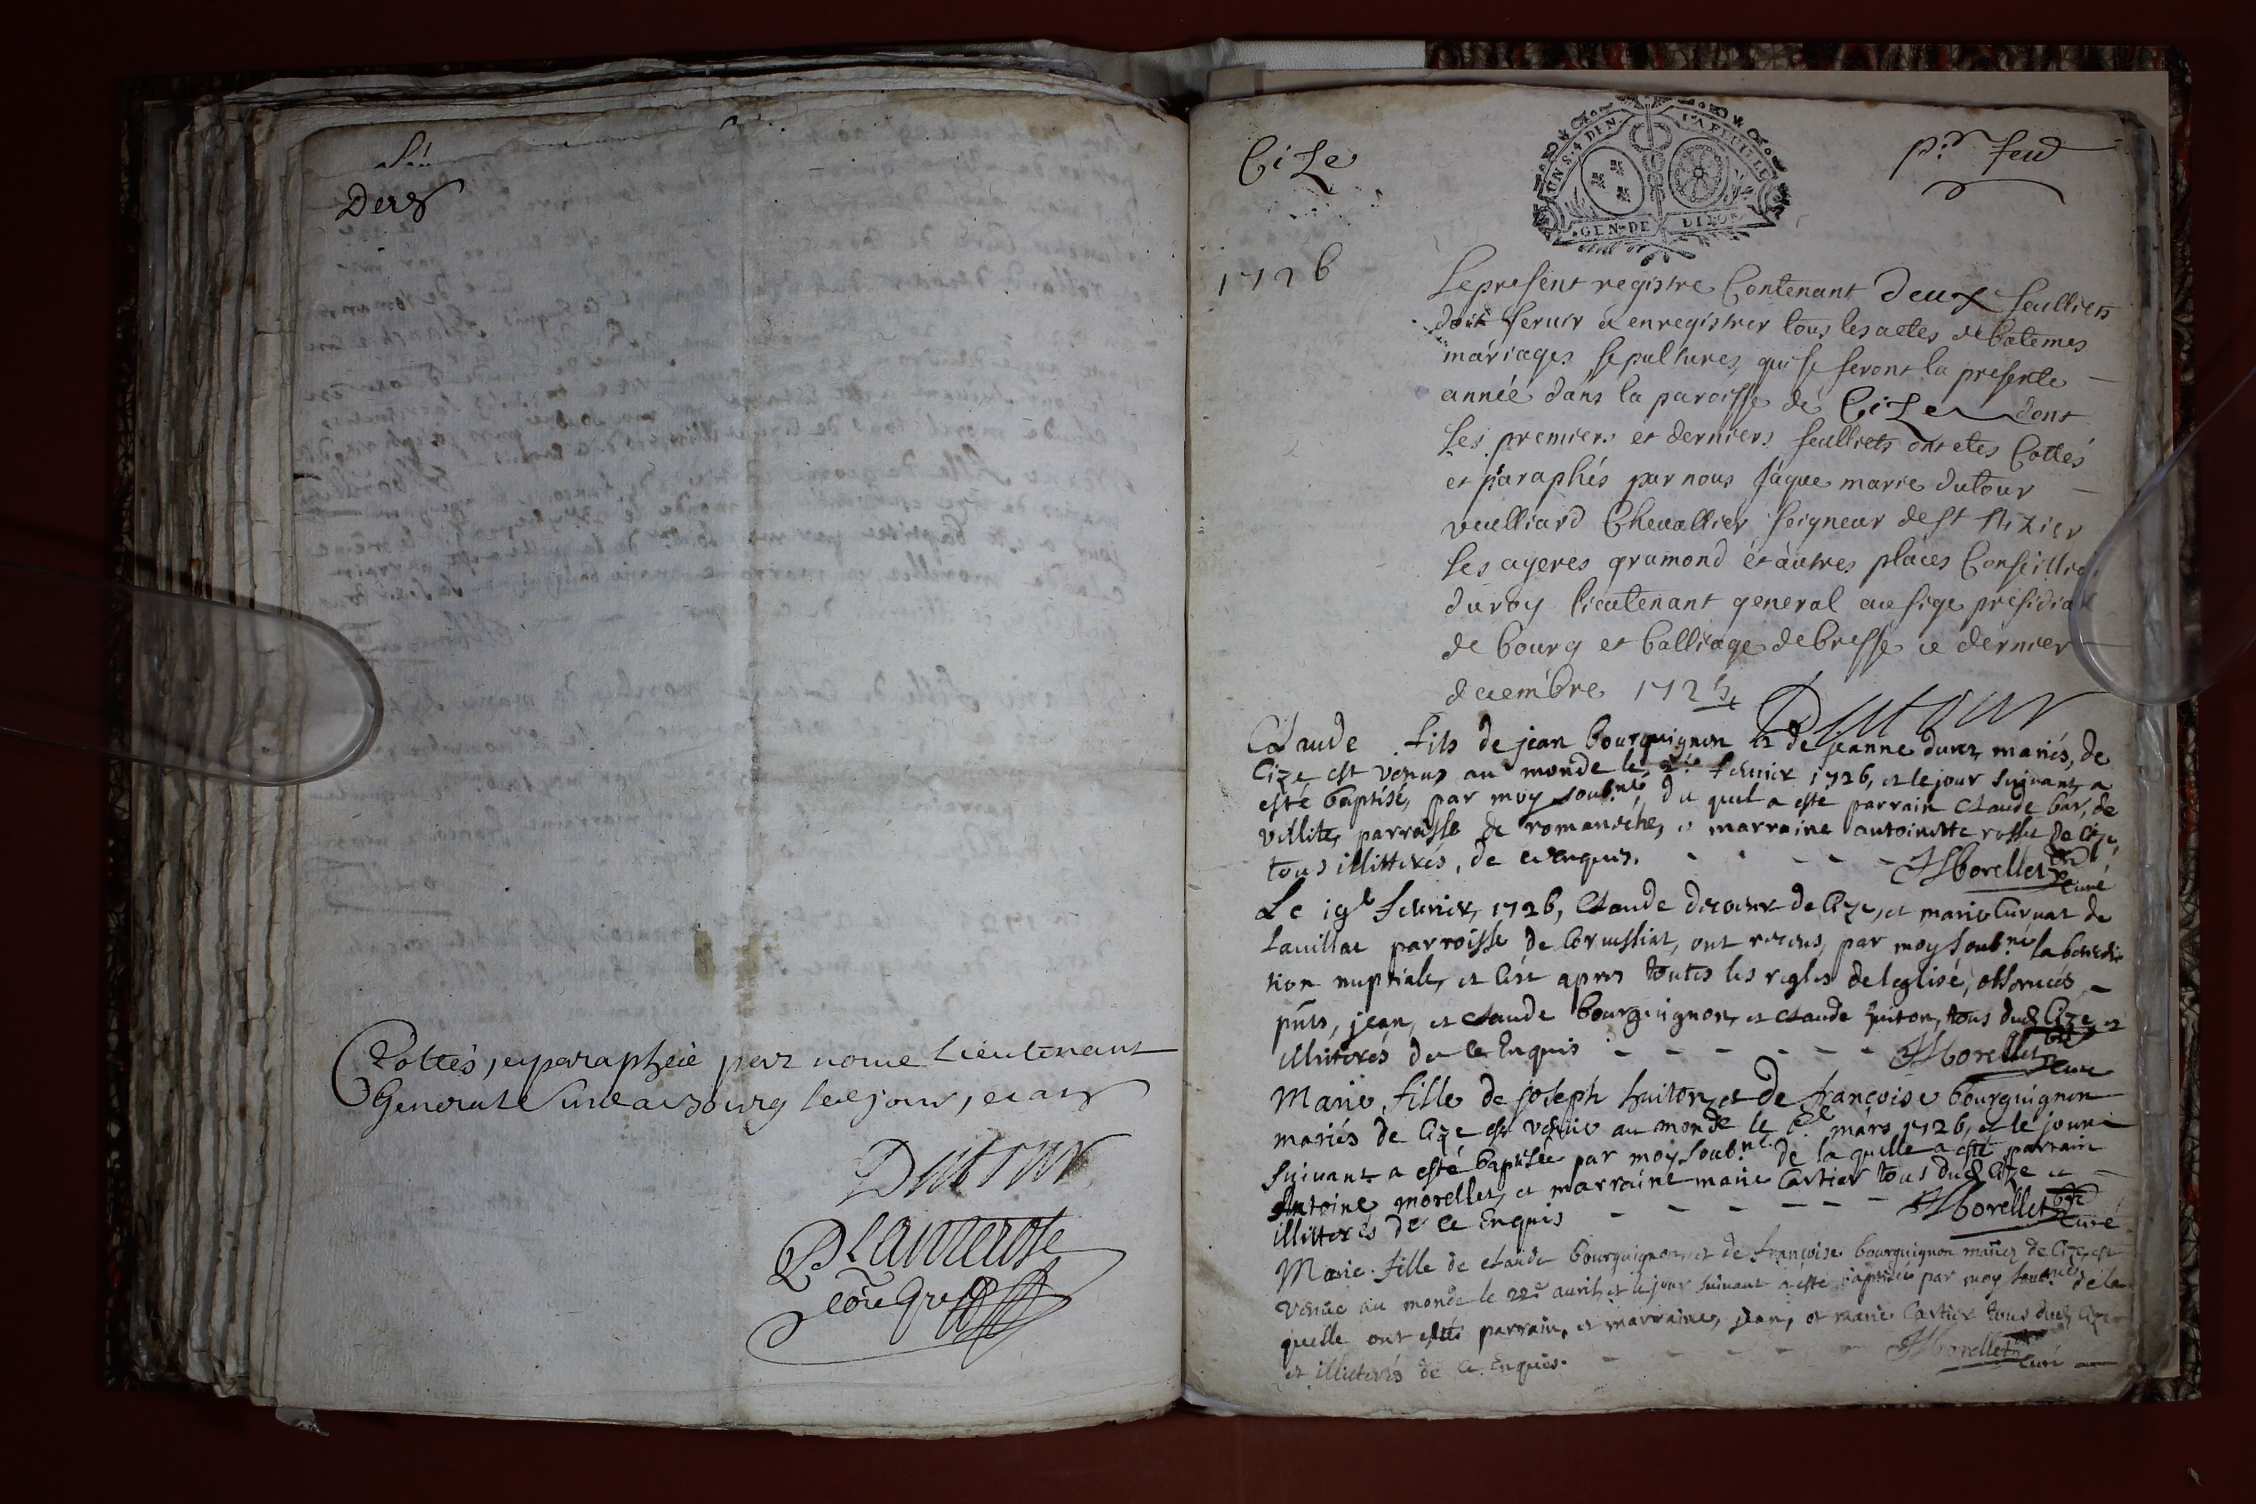 Derr
Cottés, et paraphéé par nous Lieutenant
General a Bourg led jour, et an
Dutour
Cize
UN S. 4 DEN. LA FEUILLE
GEN. DE DIJON
pr. feul
1726
Le present registre Contenant deux feulliets
doit servir a enregistrer tous les actes de batemes
mariages sepultures, qui se feront la presente
année dans la paroisse de Cize dont
les premiers et derniers feulliets ont etes Cottés
et paraphés par nous Jaque marie dutour
vuilliard Chevallier seigneur de st Nizier
les ayeres gramond et autres places Conseiller
du roy lieutenant general au siege presidial
de bourg et balliage de bresse ce dernier
decembre 1725
Dutour
Claude fils de jean bourguignon et de jeanne durez mariés, de
Cize est venus au monde le 2e fevrier 1726, et le jour suivant a
esté baptisé, par moy soub.né, du quel a esté parrain Claude bar, de
villite, parroisse de romanesche, et marraine antoinette rosset de Cize,
tous illitterés, de ce enquis. - - - - - Morellet
Curé
Le 19e fevrier, 1726, Claude decoeur de Cize, et marie Curnat de
Lavillat parroisse de Corvessiat, ont receus, par moy soub.né la benedi
tion nuptiale, et ce apres toutes les regles de leglise, observées -
pnts, jean, et claude bourguignon, et claude huiton, tous dud Cize et
illiterés de ce Enquis - - - - - - Morellet
Curé
Marie, fille de joseph huiton, et de françoise bourguignon
mariés de Cize est venue au monde le 6e mars 1726, et le jour
suivant a esté baptisée par moy soub.né. de la quelle a esté parrain
Antoine morellet, et marraine marie Cartier tous dud Cize et
illitterés de ce Enquis - - - - - - Morellet
Curé
Marie. fille de claude bourguignon, et de françoise bourguignon mariés de Cize, est
venüe au monde le 22e avril, et le jour suivant a esté baptisée par moy soub.né de la
quelle ont estés parrain, et marraine, jean, et marie Cartier tous dud, Cize
et illiterés de ce Enquis. - - - - - Morellet
Curé